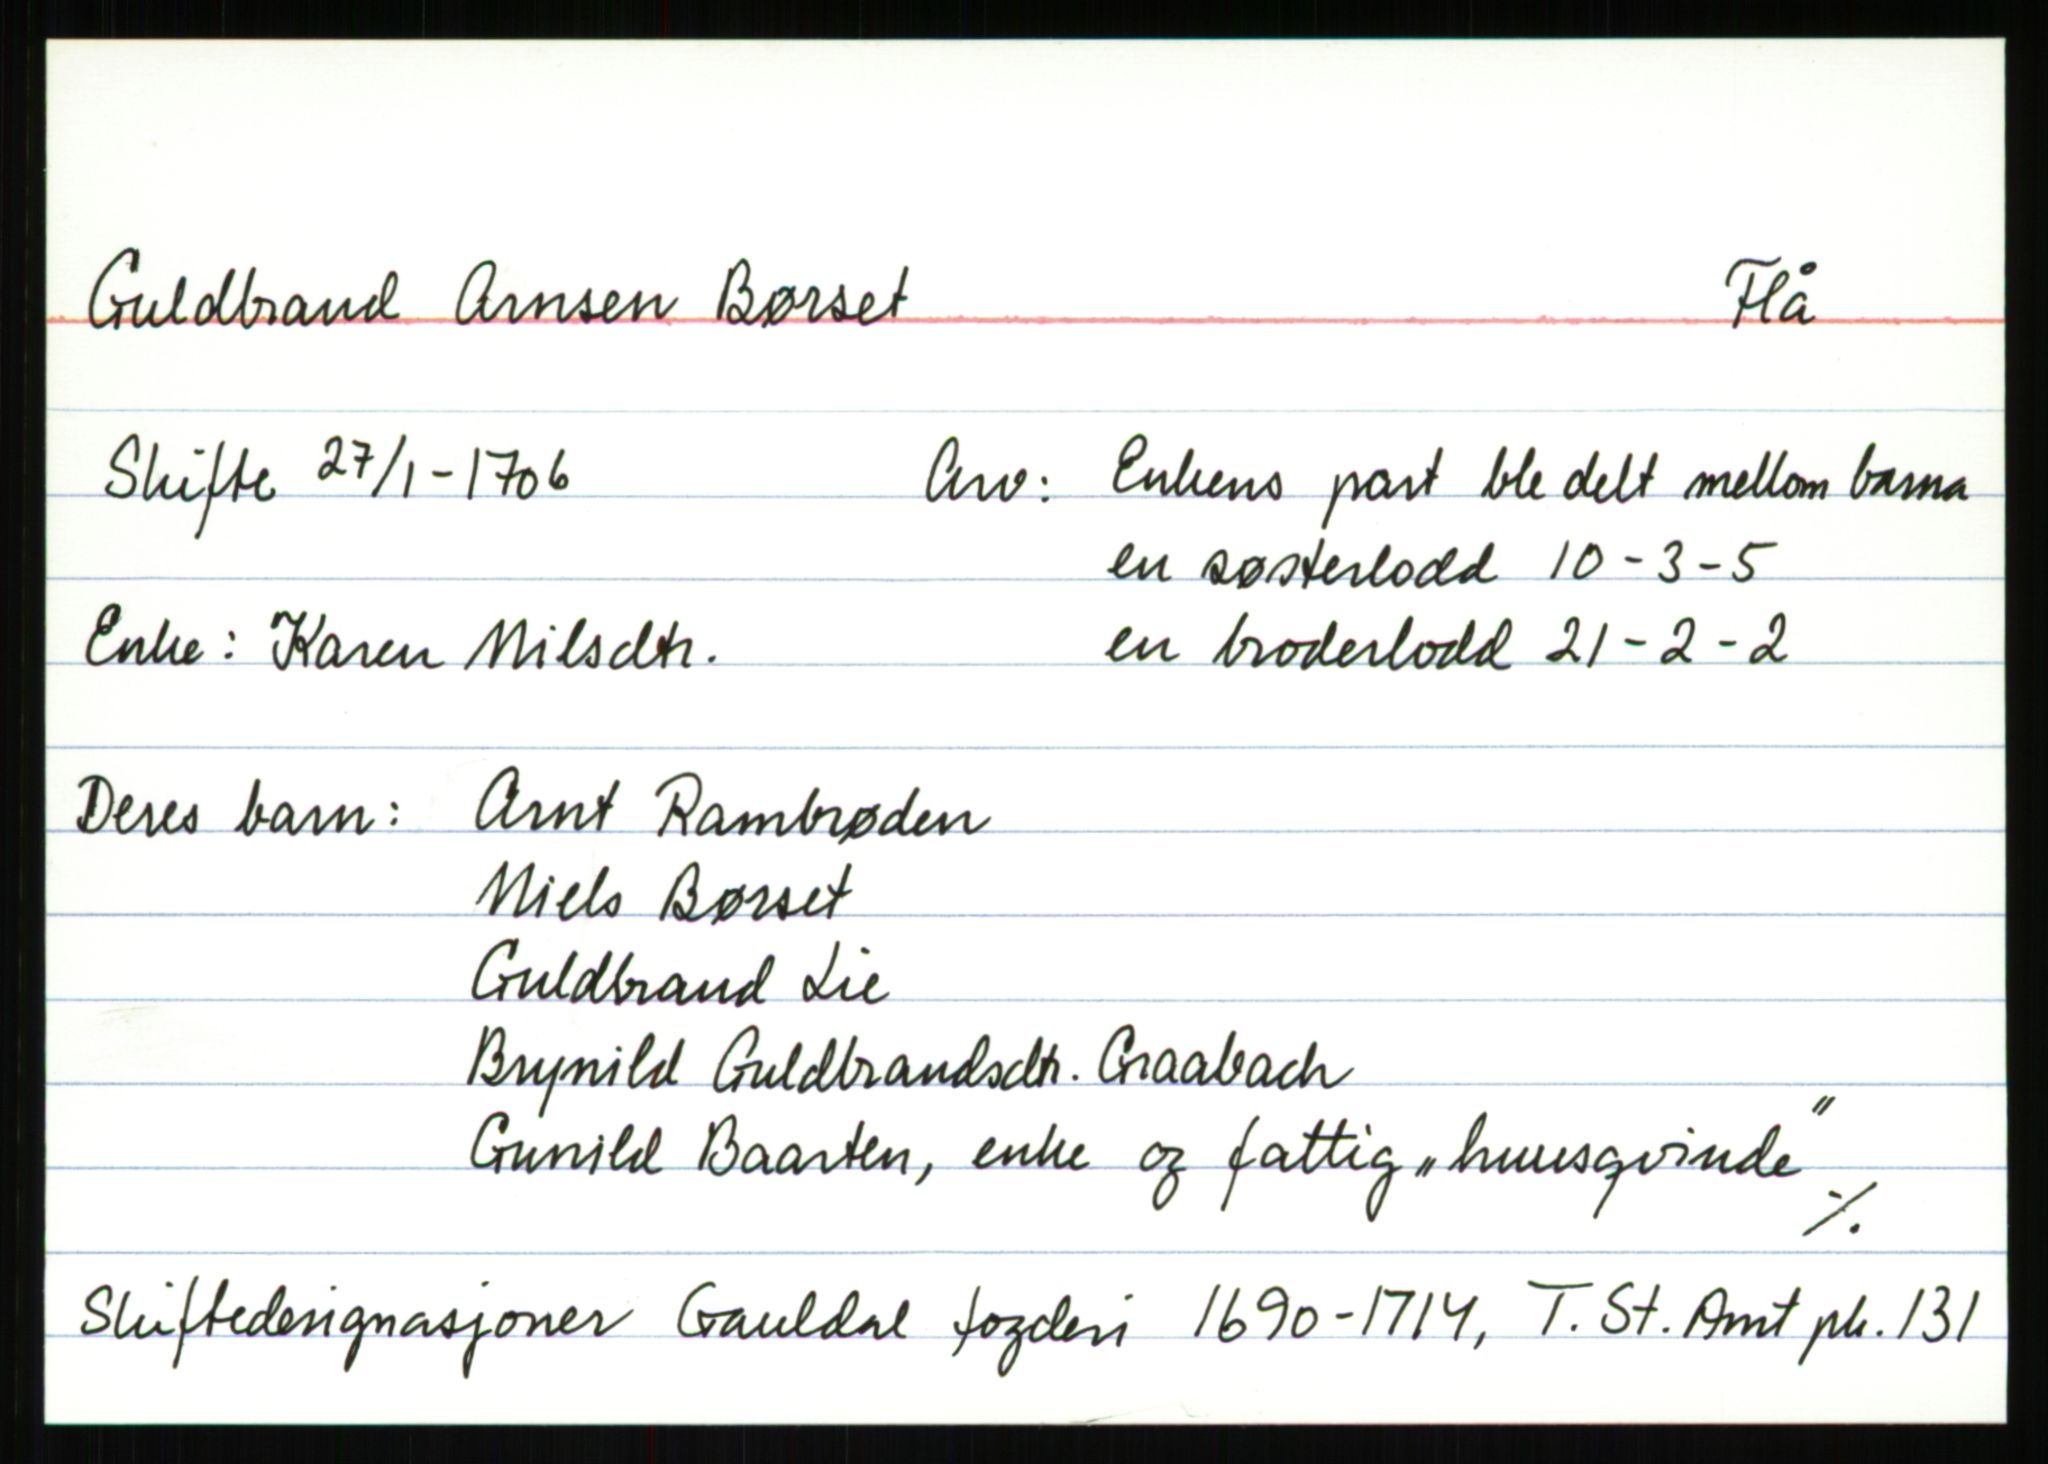 Guldbrand Arnsen Børset Flå
Skifte 27/1-1706 Arv: Enkens part ble delt mellom barna
en søsterlodd 10-3-5
Enke: Karen Nilsdtr. en broderlodd 21-2-2
Deres barn: Arnt Rambrøden
Niels Børset
Guldbrand Lie
Brynild Guldbrandsdtr. Graabach
Gunild Baarten, enke og fattig „huusqvinde"
⁒
Skiftedesignasjoner Gauldal fogderi 1690-1714, T. St. Amt pk. 131